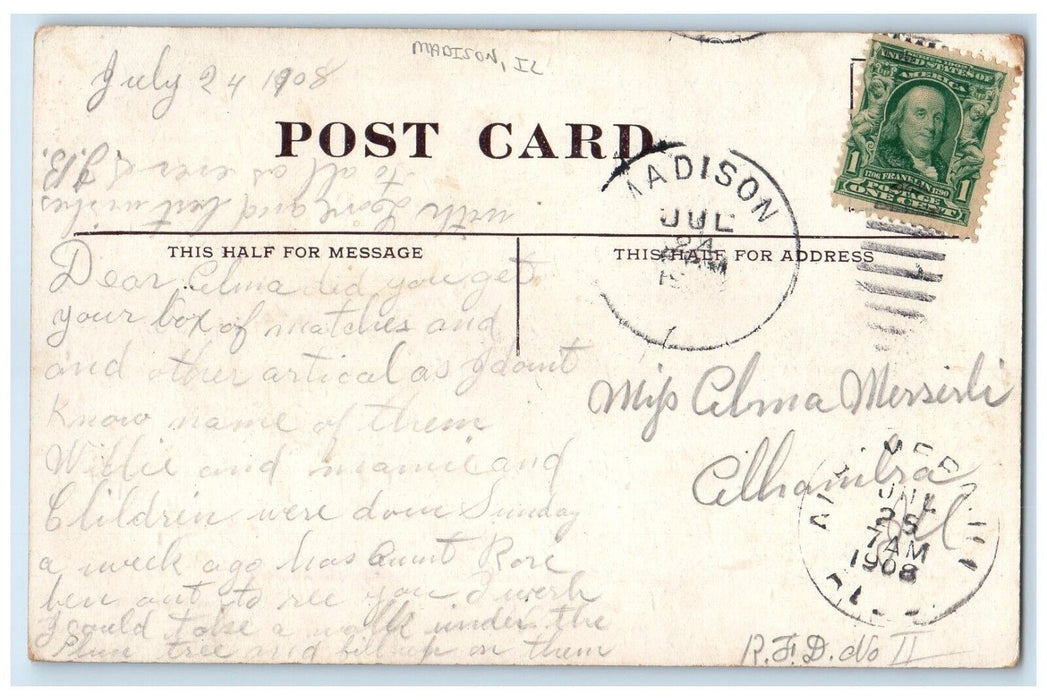 MADISON, IL
July 24 1908
POST CARD
SERIES 1902
UNITED STATES OF
AMERICA
1706 FRANKLIN 1790
1 POSTAGE 1
ONE CENT
MADISON
JUL
24
AM
THIS HALF FOR MESSAGE
THIS HALF FOR ADDRESS
Dear Elma did you get
your box of matches and
and other artical as I dount
know name of them
Willie and mamie and
Children were down Sunday
a week ago has aunt Rose
ben out to see you I wish
I could take a walk under the
Plum tree and fill up on them
with Love and best wishes
to all as ever J.B.
Miss Elma Mersinli
Alhambra
Ill
JUL
25
7AM
1908
R.F.D. No II